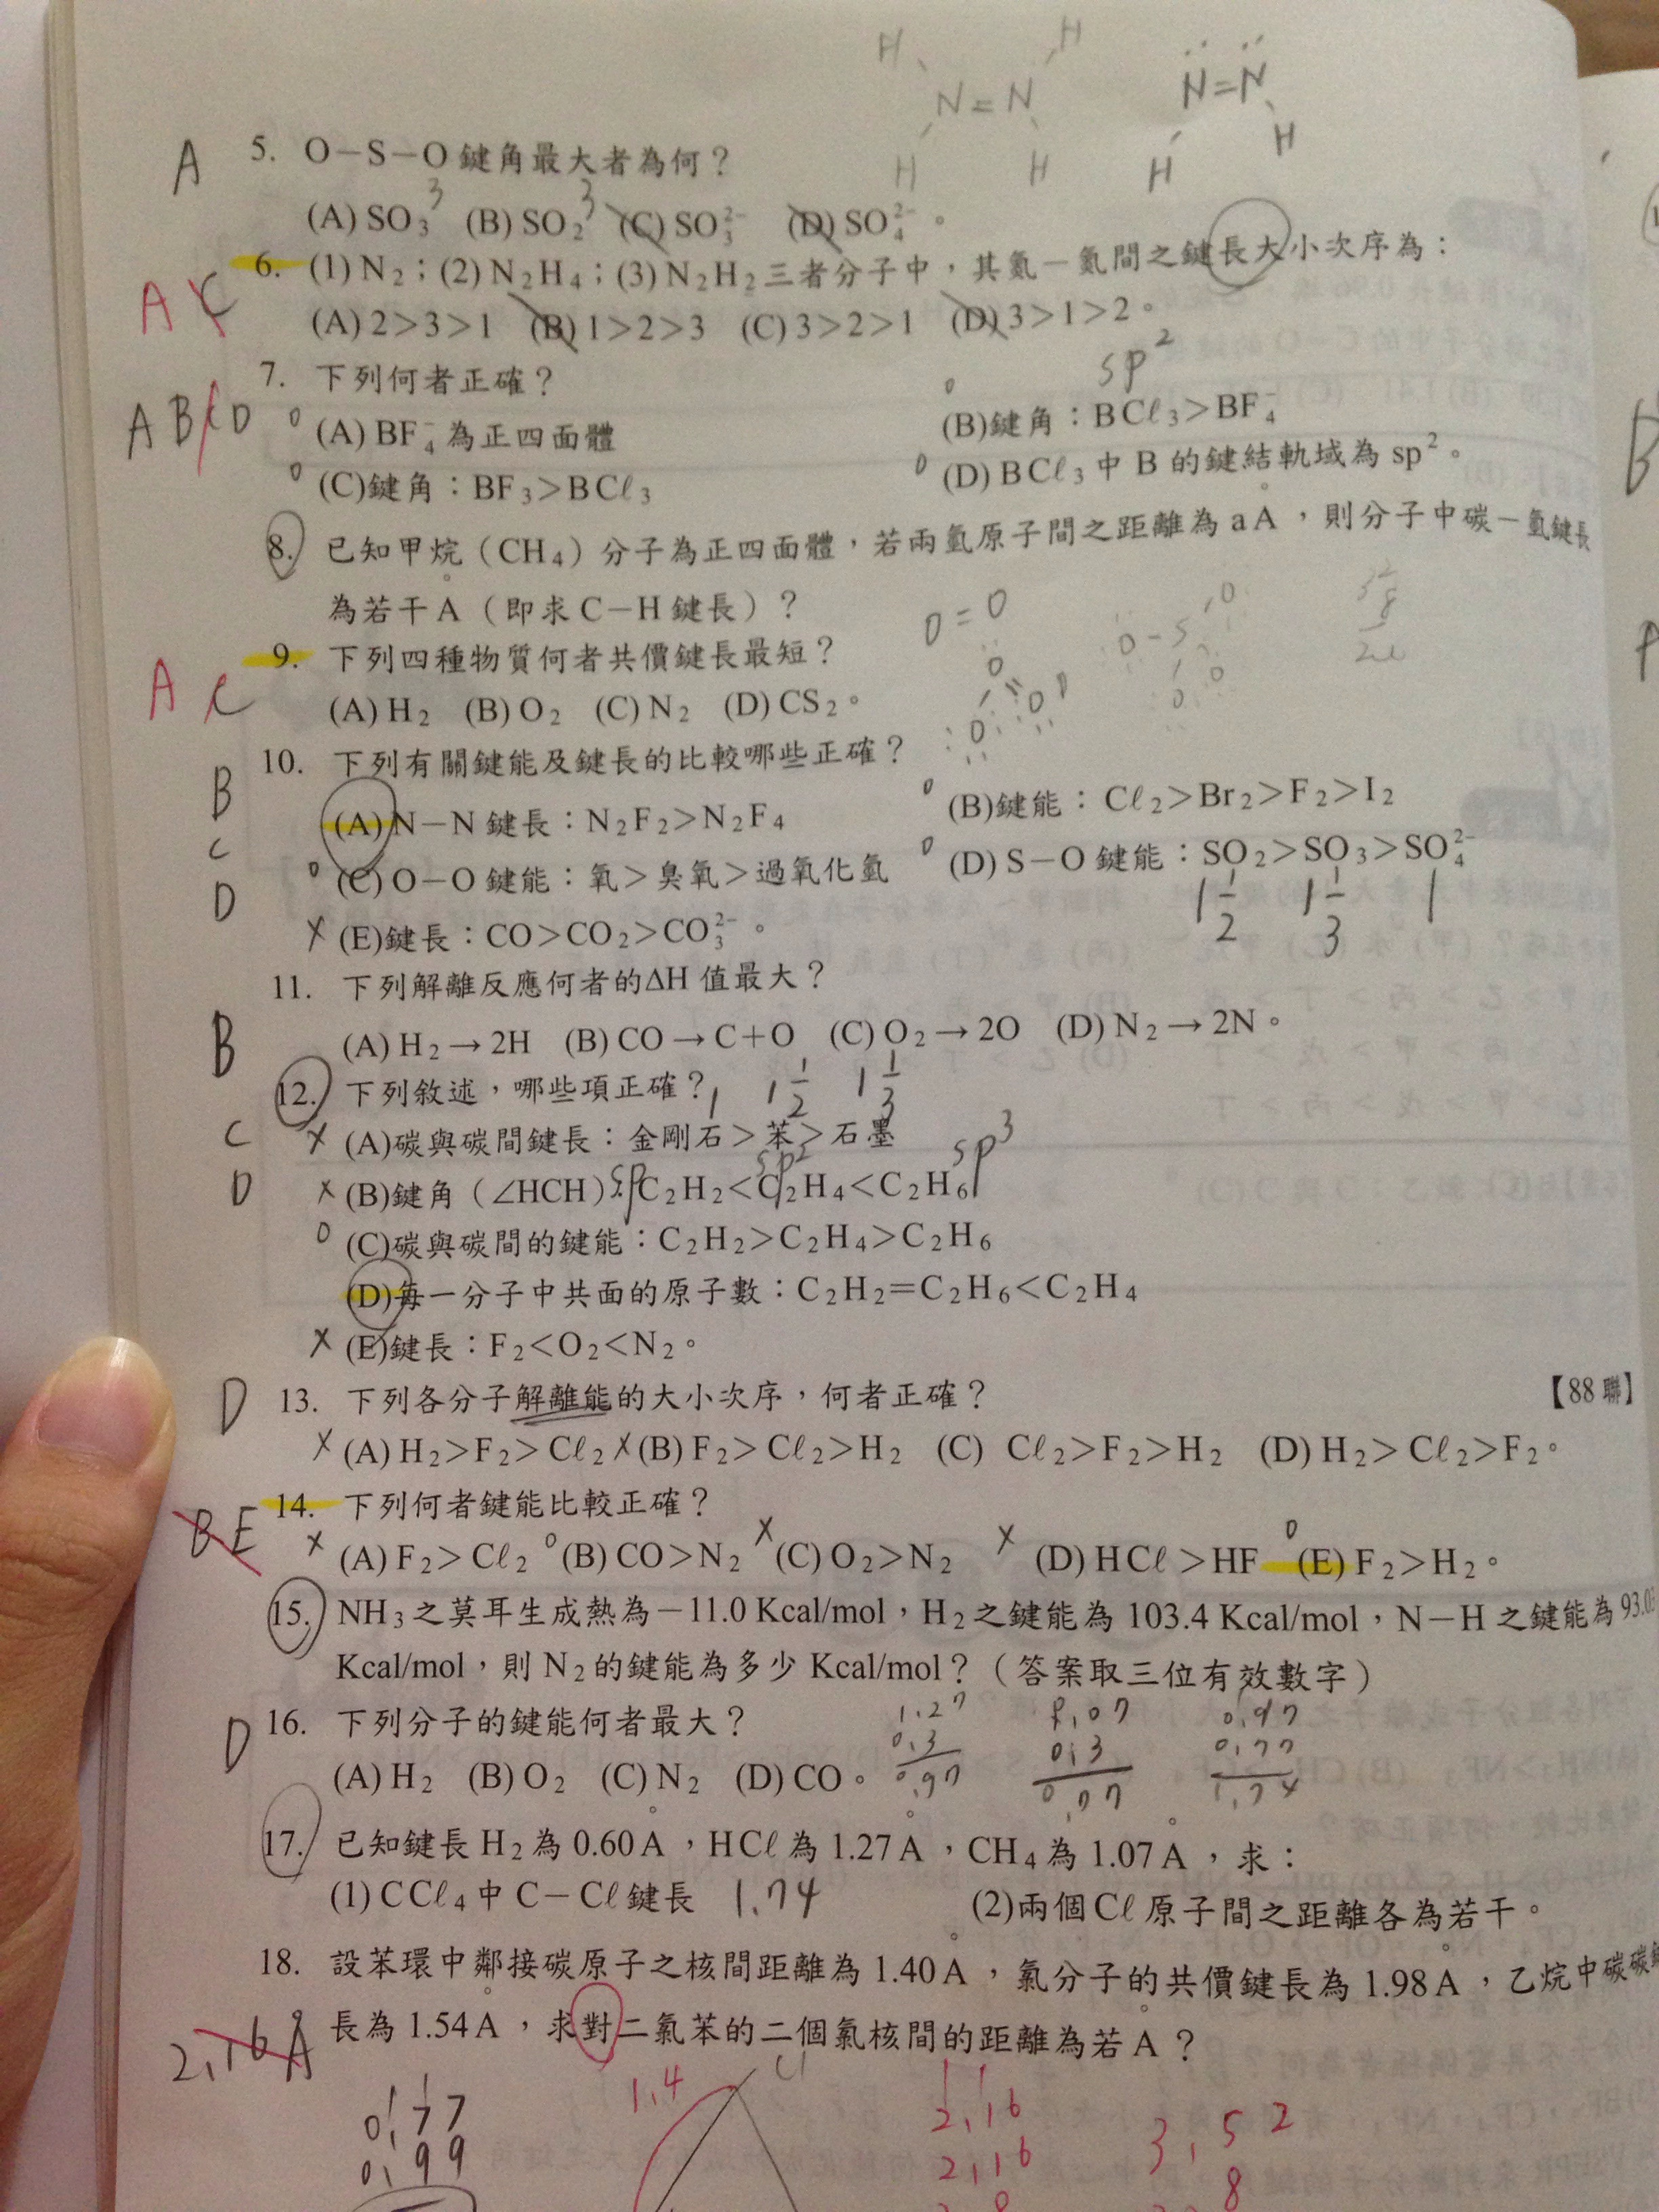 H H
N=N N=N
H H H H
A 5. O－S－O鍵角最大者為何？
3 3
(A) SO₃ (B) SO₂ (C) SO₃²⁻ (D) SO₄²⁻。
6. (1) N₂；(2) N₂H₄；(3) N₂H₂三者分子中，其氮－氮間之鍵長大小次序為：
A C
(A) 2>3>1 (B) 1>2>3 (C) 3>2>1 (D) 3>1>2。
7. 下列何者正確？
sp²
ABCD
(A) BF₄⁻為正四面體 (B)鍵角：BCℓ₃>BF₄⁻
(C)鍵角：BF₃>BCℓ₃ (D) BCℓ₃中B的鍵結軌域為sp²。
8. 已知甲烷（CH₄）分子為正四面體，若兩氫原子間之距離為aÅ，則分子中碳－氫鍵長
為若干Å（即求C－H鍵長）？
O=O
A C 9. 下列四種物質何者共價鍵長最短？
(A) H₂ (B) O₂ (C) N₂ (D) CS₂。
10. 下列有關鍵能及鍵長的比較哪些正確？
B
(A) N－N鍵長：N₂F₂>N₂F₄ (B)鍵能：Cℓ₂>Br₂>F₂>I₂
C
(C) O－O鍵能：氧>臭氧>過氧化氫 (D) S－O鍵能：SO₂>SO₃>SO₄²⁻
D
1½ 1⅓ 1
x (E)鍵長：CO>CO₂>CO₃²⁻。
11. 下列解離反應何者的ΔH值最大？
B
(A) H₂→2H (B) CO→C＋O (C) O₂→2O (D) N₂→2N。
12. 下列敘述，哪些項正確？
1 1½ 1⅓
C x (A)碳與碳間鍵長：金剛石>苯>石墨
sp sp² sp³
D x (B)鍵角（∠HCH）：C₂H₂<C₂H₄<C₂H₆
(C)碳與碳間的鍵能：C₂H₂>C₂H₄>C₂H₆
(D)每一分子中共面的原子數：C₂H₂=C₂H₆<C₂H₄
x (E)鍵長：F₂<O₂<N₂。
D 13. 下列各分子解離能的大小次序，何者正確？ 【88聯】
x (A) H₂>F₂>Cℓ₂ x (B) F₂>Cℓ₂>H₂ (C) Cℓ₂>F₂>H₂ (D) H₂>Cℓ₂>F₂。
14. 下列何者鍵能比較正確？
BE
x (A) F₂>Cℓ₂ (B) CO>N₂ x (C) O₂>N₂ x (D) HCℓ>HF (E) F₂>H₂。
15. NH₃之莫耳生成熱為－11.0 Kcal/mol，H₂之鍵能為103.4 Kcal/mol，N－H之鍵能為93.03
Kcal/mol，則N₂的鍵能為多少Kcal/mol？（答案取三位有效數字）
D 16. 下列分子的鍵能何者最大？
1.27 1.07 0.97
0.3 0.3 0.77
0.97 0.77 1.74
(A) H₂ (B) O₂ (C) N₂ (D) CO。
17. 已知鍵長H₂為0.60Å，HCℓ為1.27Å，CH₄為1.07Å，求：
(1) CCℓ₄中C－Cℓ鍵長 1.74 (2)兩個Cℓ原子間之距離各為若干。
18. 設苯環中鄰接碳原子之核間距離為1.40Å，氯分子的共價鍵長為1.98Å，乙烷中碳碳鍵
長為1.54Å，求對二氯苯的二個氯核間的距離為若Å？
2.16Å
Cl
1.4
0.77
0.99
2.16
2.16
3.52
8